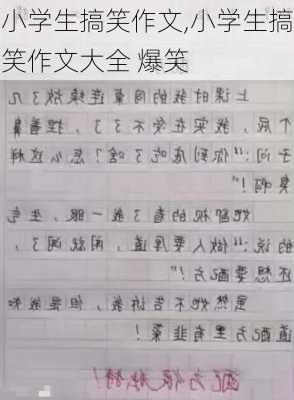 小学生搞笑作文,小学生搞
笑作文大全 爆笑
上课时我的同桌连续放了几
个屁，我实在受不了了，捏着鼻
子问："你到底吃了啥？怎么这样
臭啊！"
她鄙视的看了我一眼，生气
的说："做人要厚道，闻就闻了，
还想要配方！"
虽然她不告诉我，但是我知
道配方里有韭菜！
配方很独特！